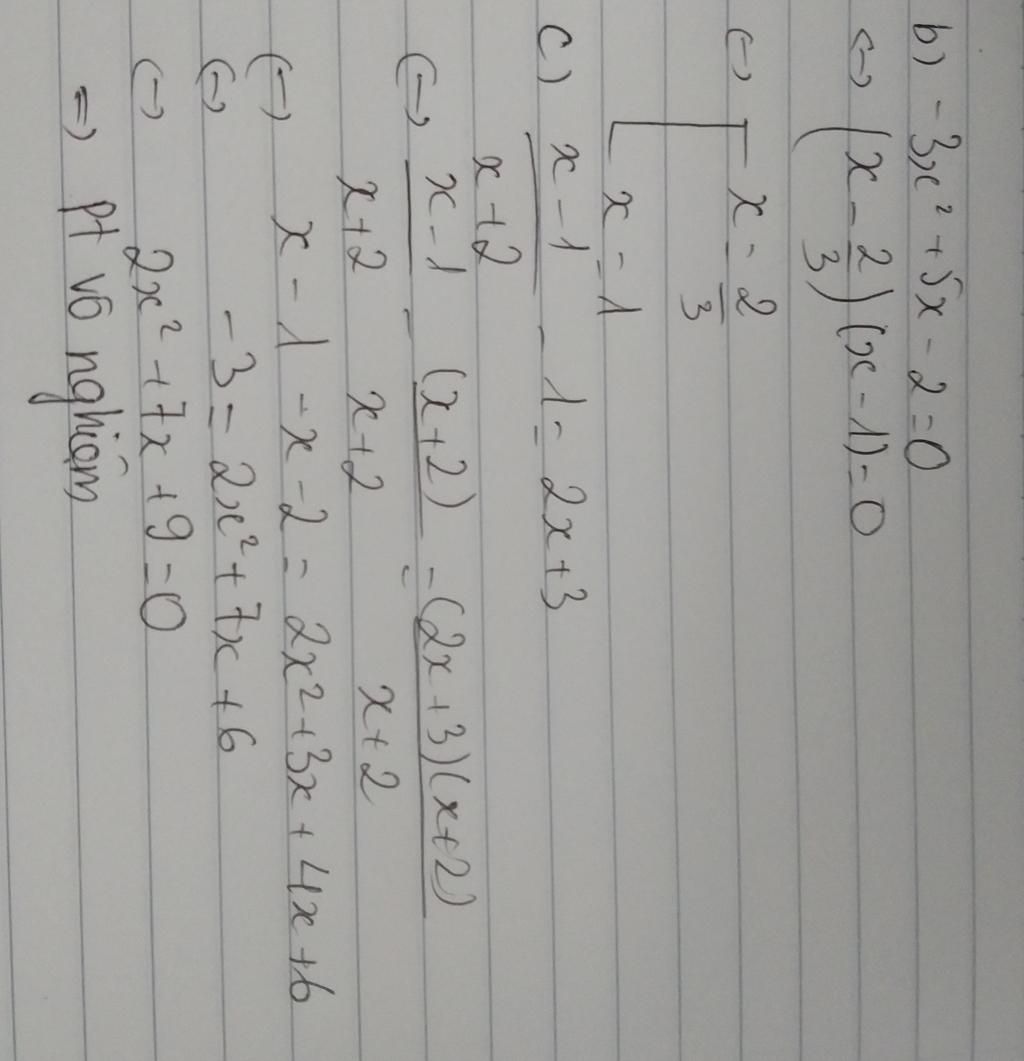 b) -3x² + 5x - 2 = 0
<-> (x - 2/3)(x - 1) = 0
<-> [ x = 2/3
x = 1
c) x - 1 / x + 2 - 1 = 2x + 3
<-> x - 1 / x + 2 - (x + 2) / x + 2 = (2x + 3)(x + 2) / x + 2
<-> x - 1 - x - 2 = 2x² + 3x + 4x + 6
<-> -3 = 2x² + 7x + 6
<-> 2x² + 7x + 9 = 0
=> pt vô nghiệm